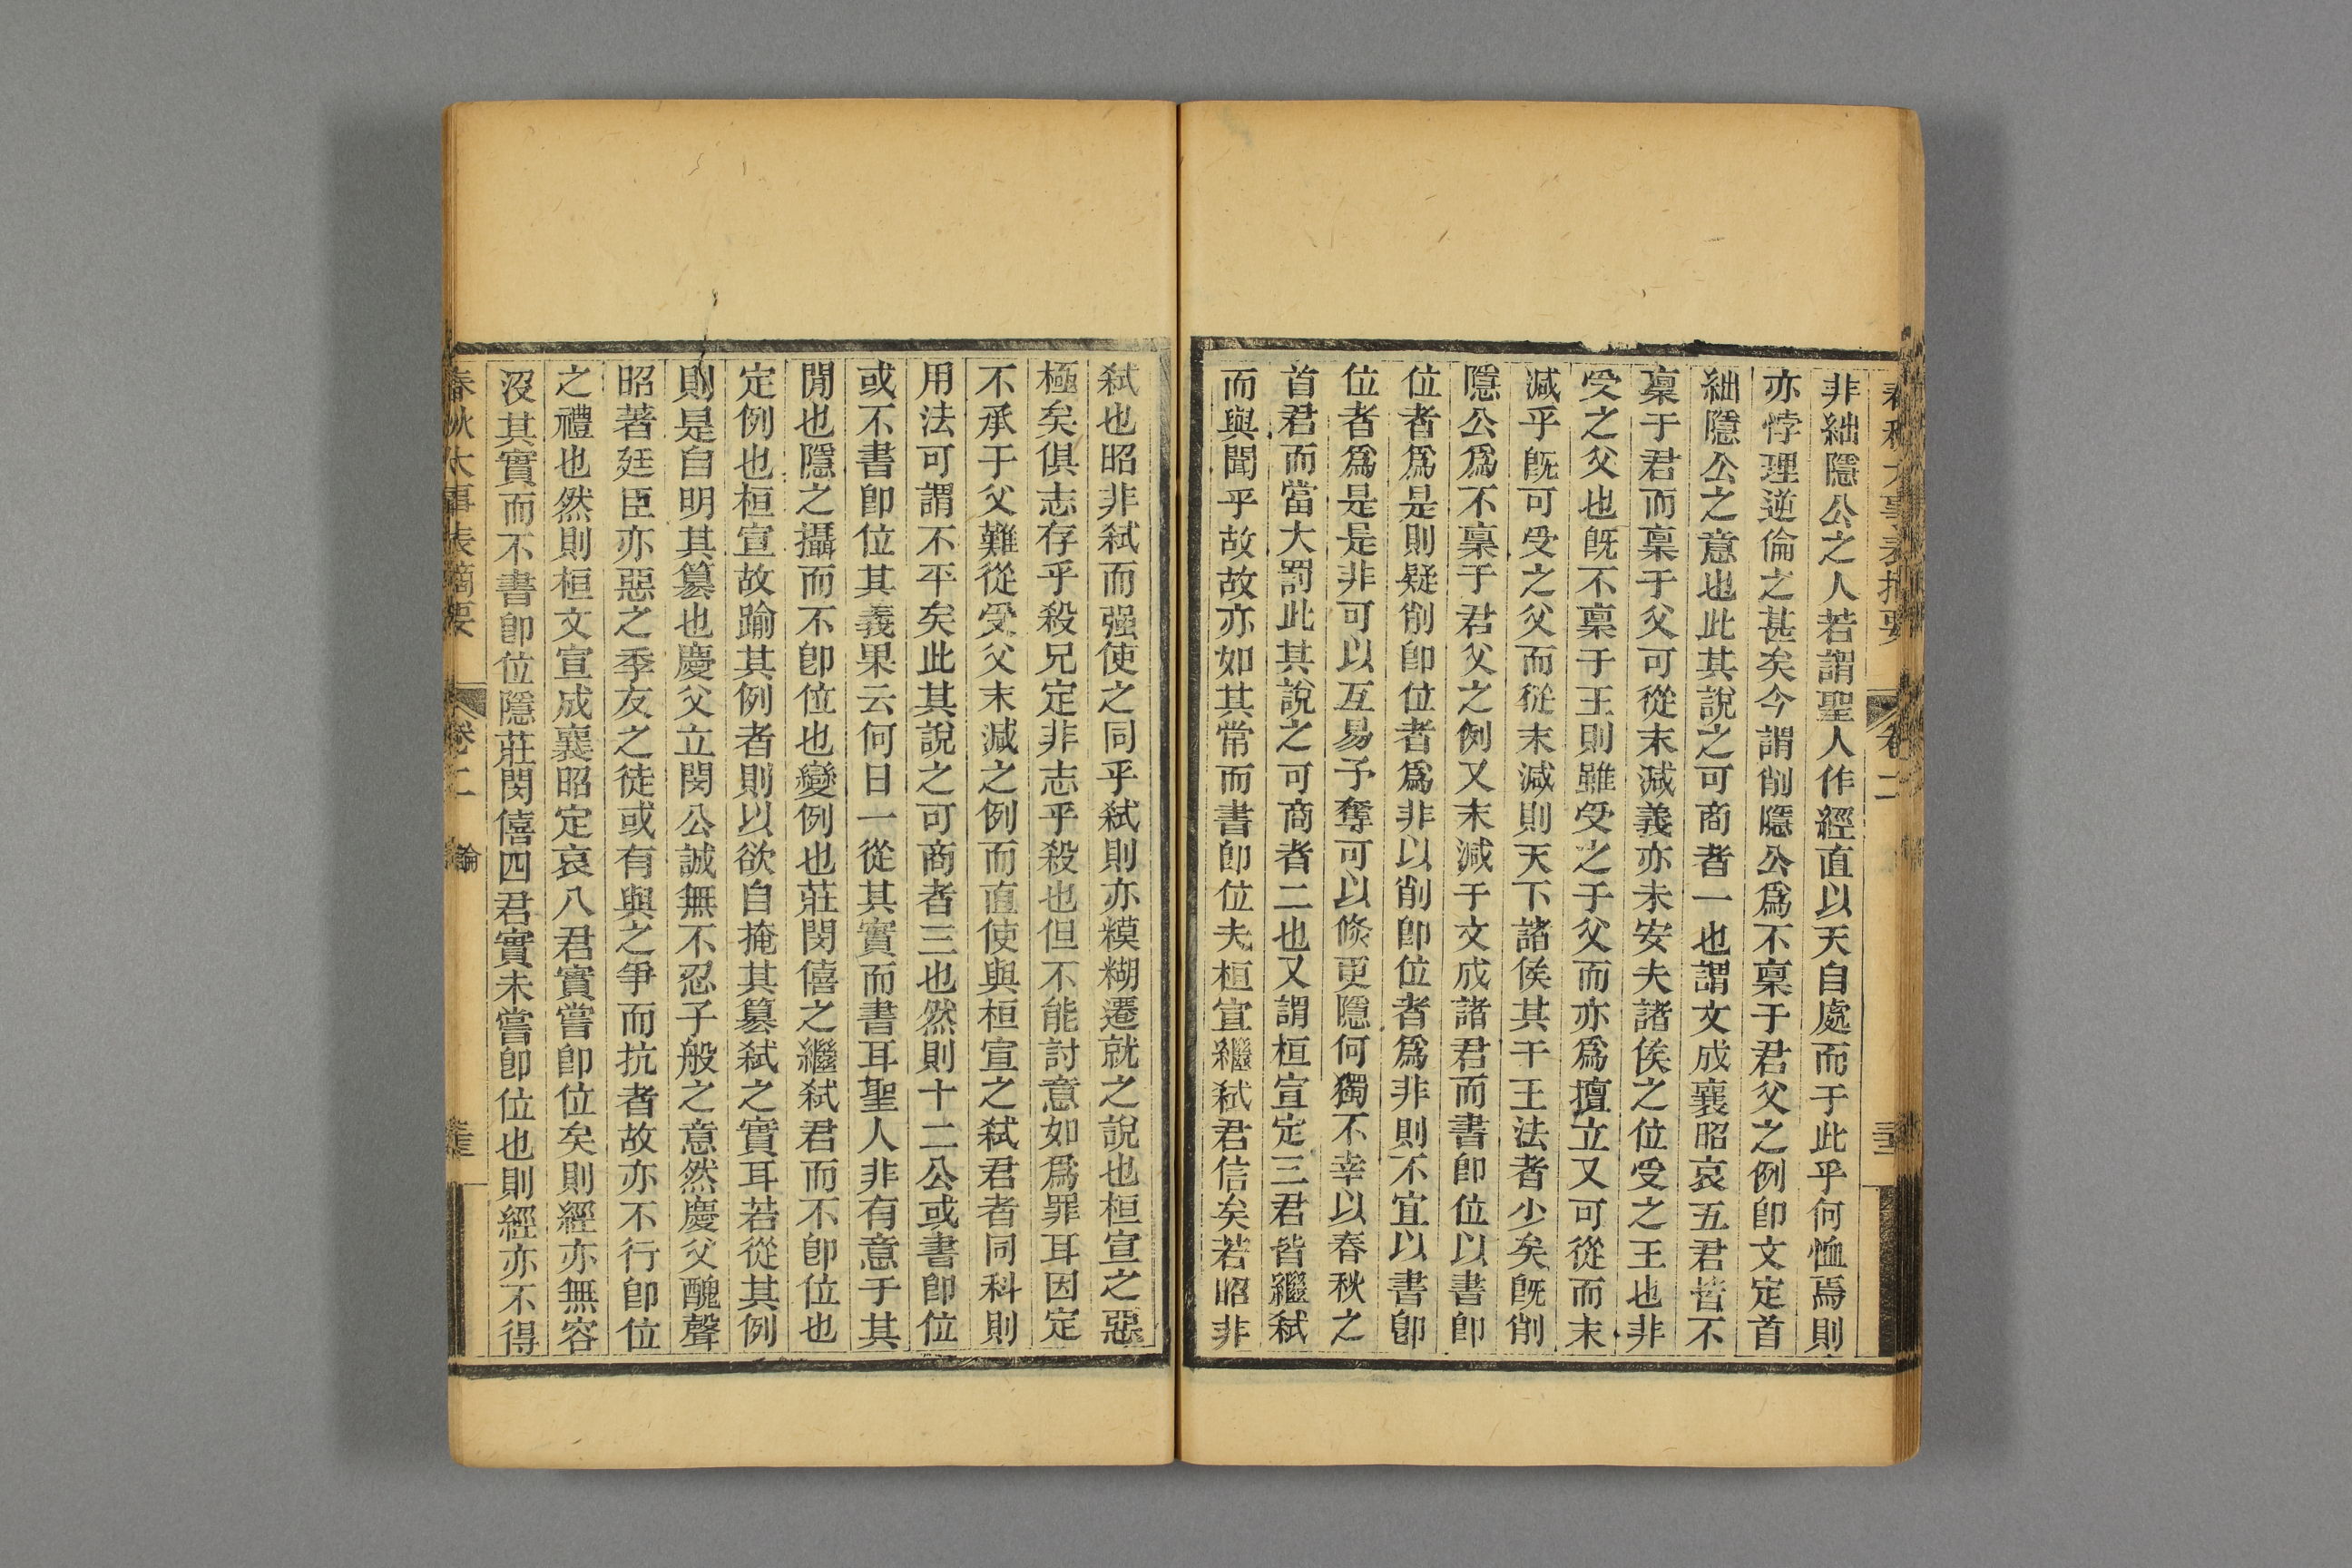 春秋大事表摘要 卷二
非絀隱公之人若謂聖人作經直以天自處而于此乎何恤焉則
亦悖理逆倫之甚矣今謂削隱公爲不禀于君父之例卽文定首
絀隱公之意也此其說之可商者一也謂文成襄昭哀五君皆不
禀于君而禀于父可從末減義亦未安夫諸侯之位受之王也非
受之父也旣不禀于王則雖受之于父而亦爲擅立又可從而末
減乎旣可受之父而從末減則天下諸侯其干王法者少矣旣削
隱公爲不禀于君父之例又末減于文成諸君而書卽位以書卽
位者爲是則疑削卽位者爲非以削卽位者爲非則不宜以書卽
位者爲是是非可以互易予奪可以倐更隱何獨不幸以春秋之
首君而當大罰此其說之可商者二也又謂桓宣定三君皆繼弒
而與聞乎故故亦如其常而書卽位夫桓宣繼弒君信矣若昭非
弒也昭非弒而强使之同乎弒則亦糢糊遷就之說也桓宣之惡
極矣俱志存乎殺兄定非志乎殺也但不能討意如爲罪耳因定
不承于父難從受父末減之例而直使與桓宣之弒君者同科則
用法可謂不平矣此其說之可商者三也然則十二公或書卽位
或不書卽位其義果云何曰一從其實而書耳聖人非有意于其
閒也隱之攝而不卽位也變例也莊閔僖之繼弒君而不卽位也
定例也桓宣故踰其例者則以欲自掩其簒弒之實耳若從其例
則是自明其簒也慶父立閔公誠無不忍子般之意然慶父醜聲
昭著廷臣亦惡之季友之徒或有與之爭而抗者故亦不行卽位
之禮也然則桓文宣成襄昭定哀八君實嘗卽位矣則經亦無容
沒其實而不書卽位隱莊閔僖四君實未嘗卽位也則經亦不得
春秋大事表摘要 卷二 論